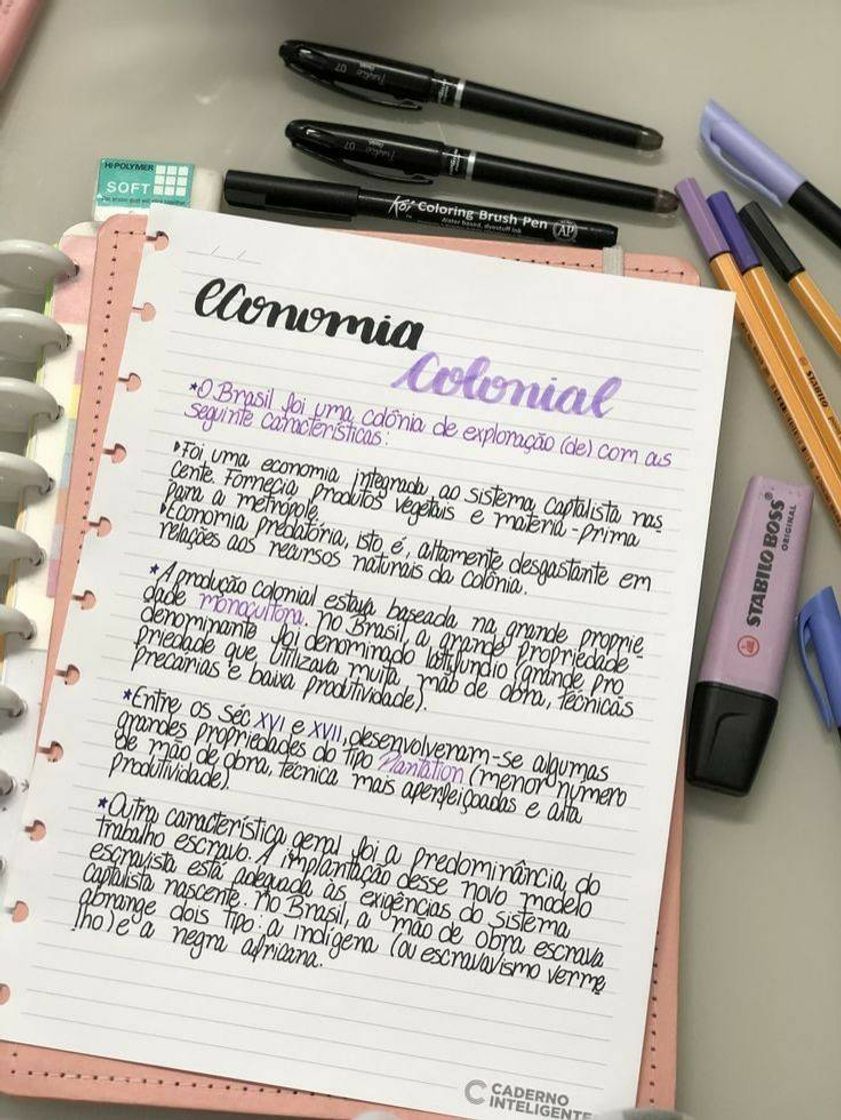 Practice Pentel 07
Practice Pentel 07
HI-POLYMER
SOFT
Koi Coloring Brush Pen
Water based, dyestuff ink
AP
STABILO
STABILO BOSS
ORIGINAL
economia
colonial
*O Brasil foi uma colônia de exploração (de) com as
seguinte características:
▸Foi uma economia integrada ao sistema captalista nas
cente. Fornecia produtos vegetais e matéria-prima
para a metrópole.
▸Economia predatória, isto é, altamente desgastante em
relações aos recursos naturais da colônia.
*A produção colonial estava baseada na grande proprie
dade monocultora. No Brasil, a grande propriedade
denominante foi denominado latifundio (grande pro
priedade que utilizava muita mão de obra, técnicas
precárias e baixa produtividade).
*Entre os séc XVI e XVII, desenvolveram-se algumas
grandes propriedades do tipo Plantation (menor número
de mão de obra, técnica mais aperfeiçoadas e alta
produtividade).
*Outra característica geral foi a predominância do
trabalho escravo. A implantação desse novo modelo
escravista está adequada às exigências do sistema
captalista nascente. No Brasil, a mão de obra escrava
abrange dois tipo: a indígena (ou escravavismo verme
lho) e a negra africana.
CADERNO
INTELIGENTE